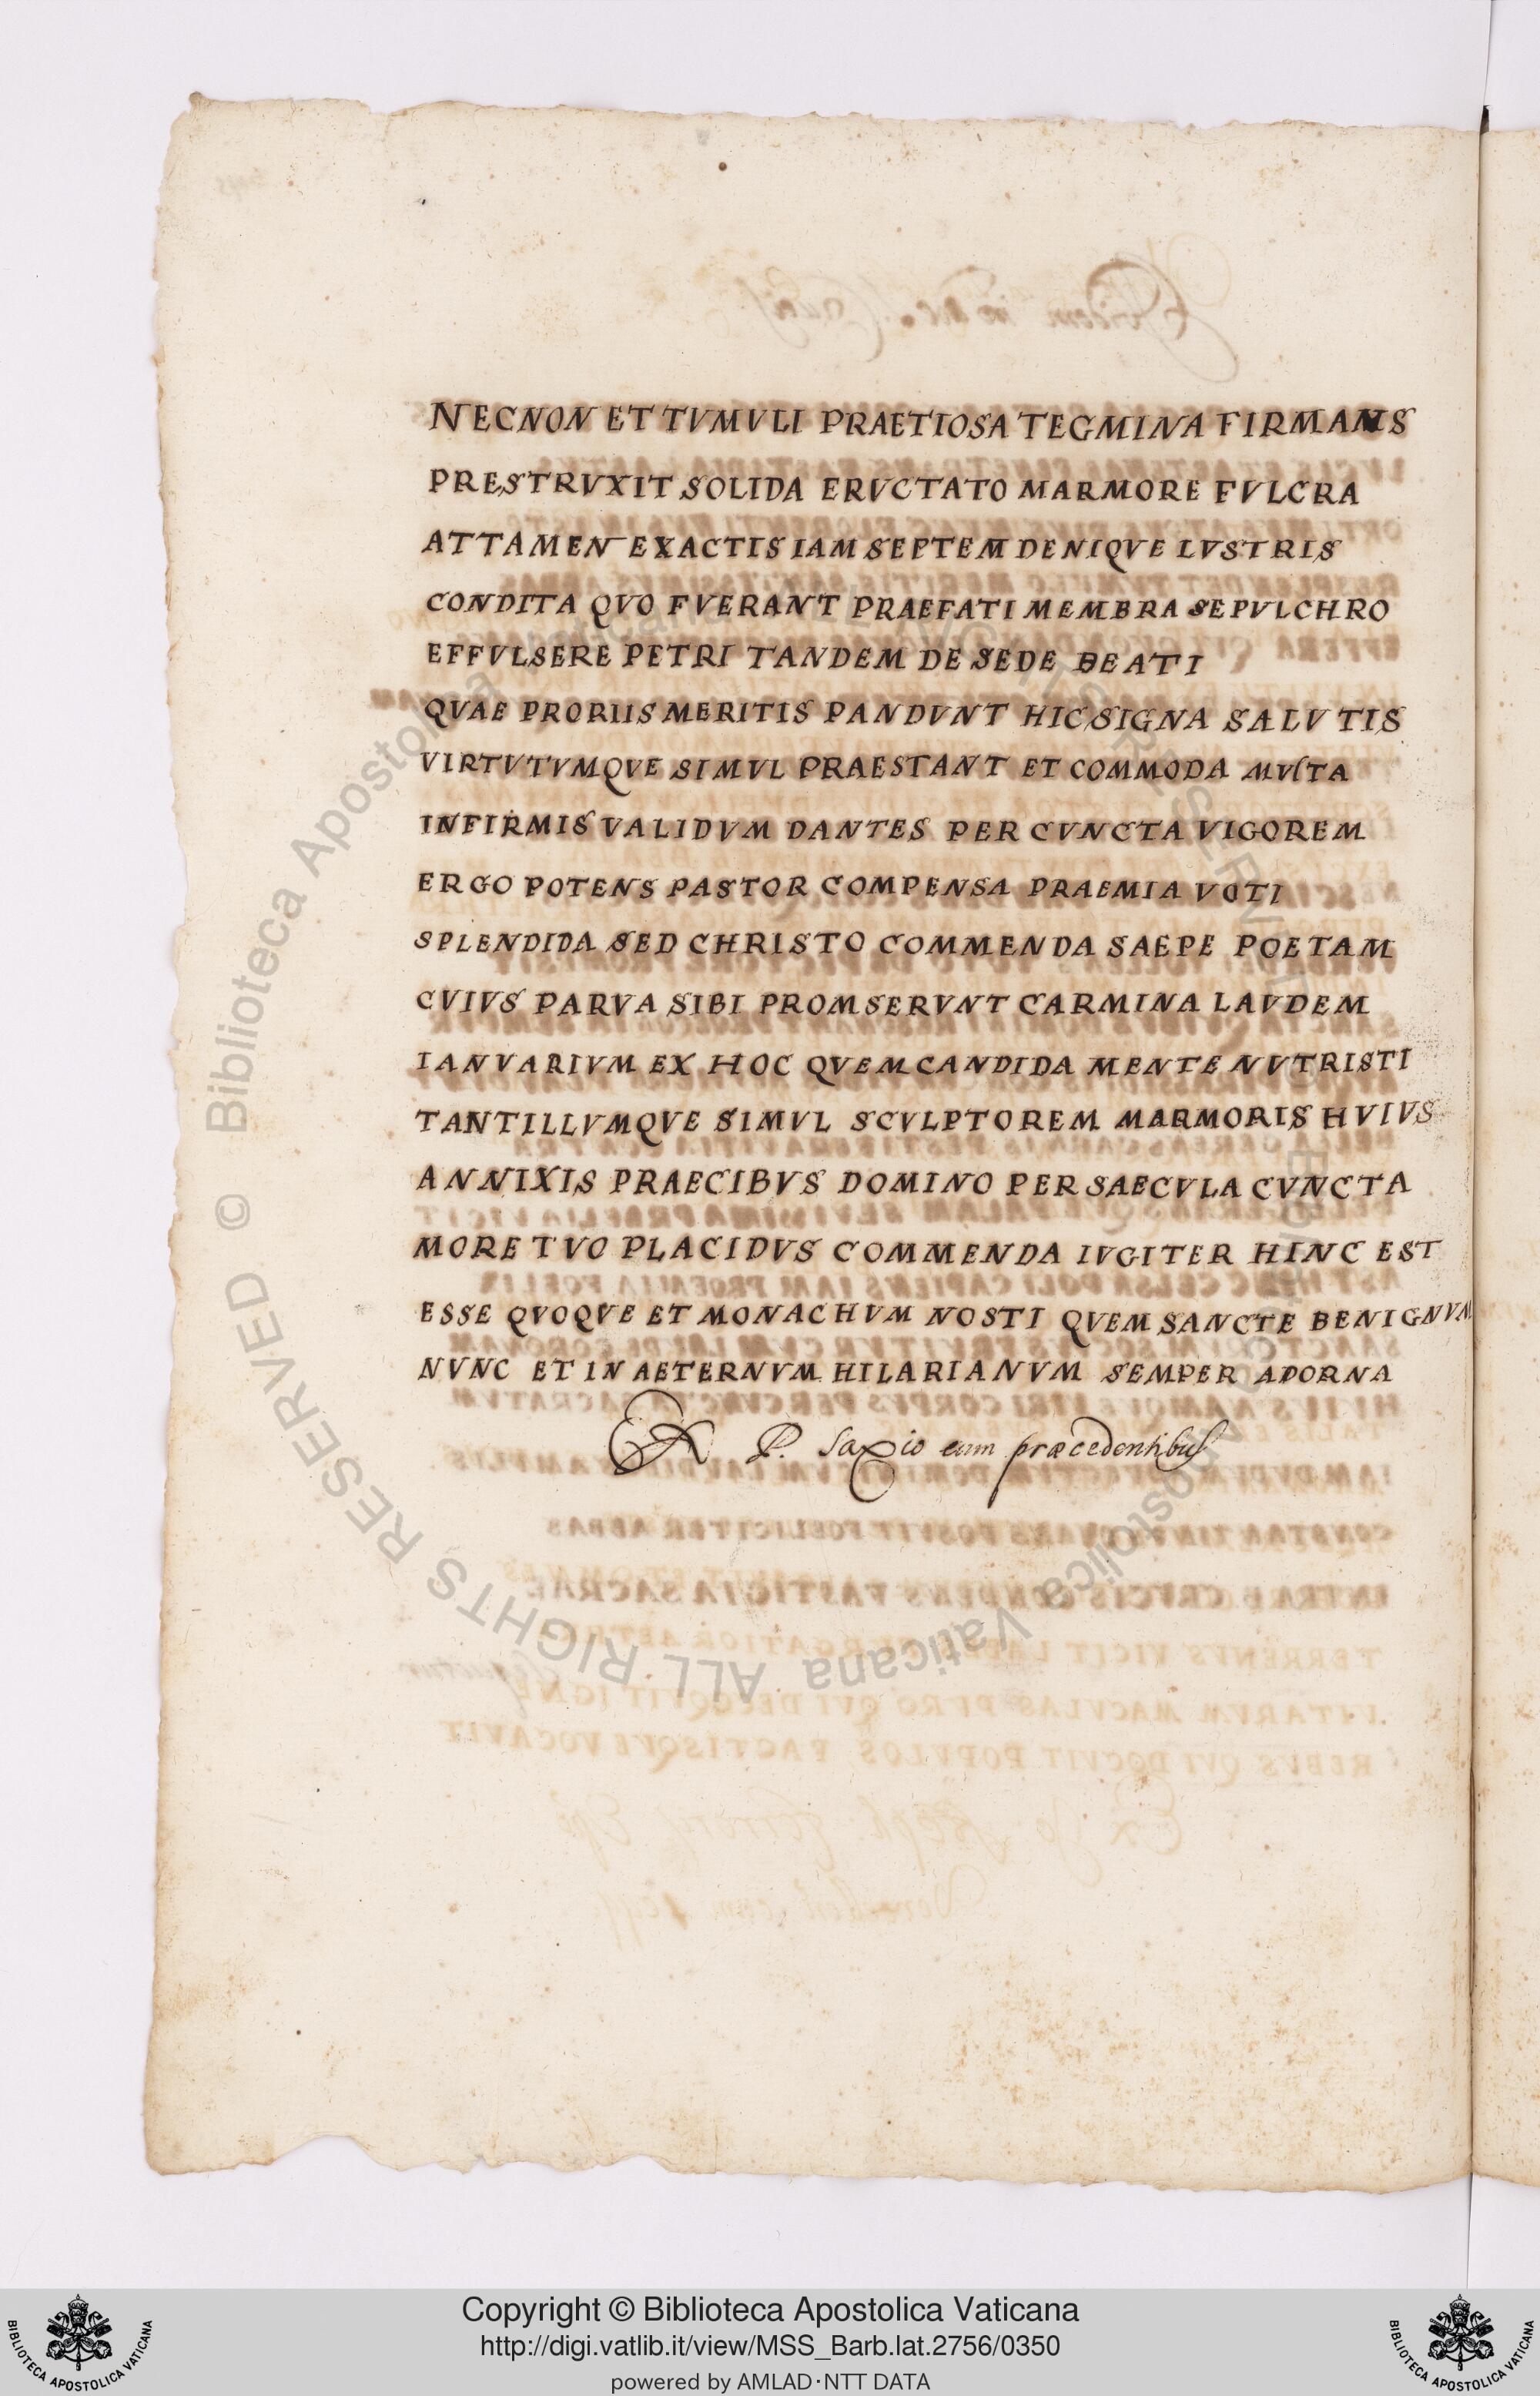 NECNON ET TVMVLI PRAETIOSA TEGMINA FIRMANS
PRESTRVXIT SOLIDA ERVCTATO MARMORE FVLCRA
ATTAMEN EXACTIS IAM SEPTEM DENIQVE LVSTRIS
CONDITA QVO FVERANT PRAEFATI MEMBRA SEPVLCHRO
EFFVLSERE PETRI TANDEM DE SEDE BEATI
QVAE PRORIIS MERITIS PANDVNT HIC SIGNA SALVTIS
VIRTVTVMQVE SIMVL PRAESTANT ET COMMODA MVLTA
INFIRMIS VALIDVM DANTES PER CVNCTA VIGOREM
ERGO POTENS PASTOR COMPENSA PRAEMIA VOTI
SPLENDIDA SED CHRISTO COMMENDA SAEPE POETAM
CVIVS PARVA SIBI PROMSERVNT CARMINA LAVDEM
IANVARIVM EX HOC QVEM CANDIDA MENTE NVTRISTI
TANTILLVMQVE SIMVL SCVLPTOREM MARMORIS HVIVS
ANNIXIS PRAECIBVS DOMINO PER SAECVLA CVNCTA
MORE TVO PLACIDVS COMMENDA IVGITER HINC EST
ESSE QVOQVE ET MONACHVM NOSTI QVEM SANCTE BENIGNVM
NVNC ET IN AETERNVM HILARIANVM SEMPER ADORNA
P. Saxio cum præcedentibus
© Biblioteca Apostolica Vaticana ALL RIGHTS RESERVED
Copyright © Biblioteca Apostolica Vaticana
http://digi.vatlib.it/view/MSS_Barb.lat.2756/0350
powered by AMLAD·NTT DATA
BIBLIOTECA APOSTOLICA VATICANA
BIBLIOTECA APOSTOLICA VATICANA